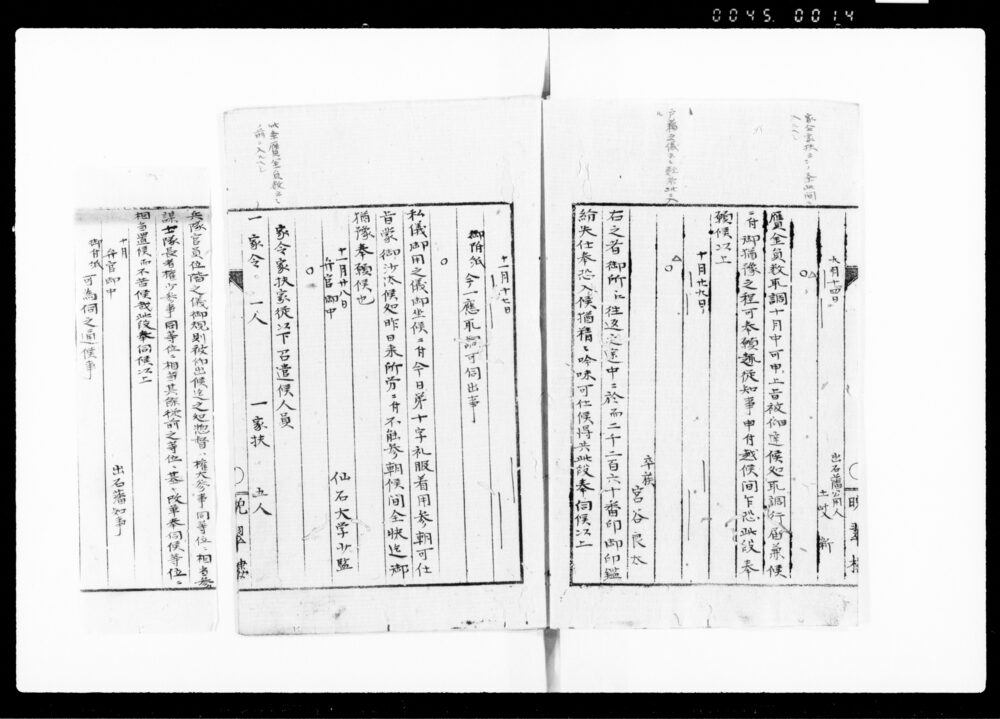 0045. 0014
九月十四日
出石藩公用人
土岐 新
贋金員数取調十月中可申上旨被仰達候処取調行届兼候
ニ付御猶豫之程可奉願趣従知事申付越候間乍恐此段奉
願候以上
十月廿九日
卒族
宮谷良太
右之者御所江往返之途中ニ於而二千二百六十番印御印鑑
紛失仕奉恐入候猶精々吟味可仕候得共此段奉伺候以上
十一月十七日
御附紙 今一應取調可伺出事
私儀御用之儀御坐候ニ付今日第十字礼服着用参朝可仕
旨蒙御沙汰候処昨日来所労ニ付不能参朝候間全快迄御
猶豫奉願候也
十一月廿八日
仙石大学少監
弁官御中
家令家扶家従以下召遣候人員
一 家令 一人 一 家扶 五人
兵隊官員位階之儀御規則被仰出候迄之処惣督ハ権大参事同等位ニ相当参
謀士隊長者権少参事同等位ニ相当其餘従前之等位ニ基キ改革奉伺候等位ニ
相当置候而不苦候哉此段奉伺候以上
十月
出石藩知事
弁官御中
御付紙 可為伺之通候事